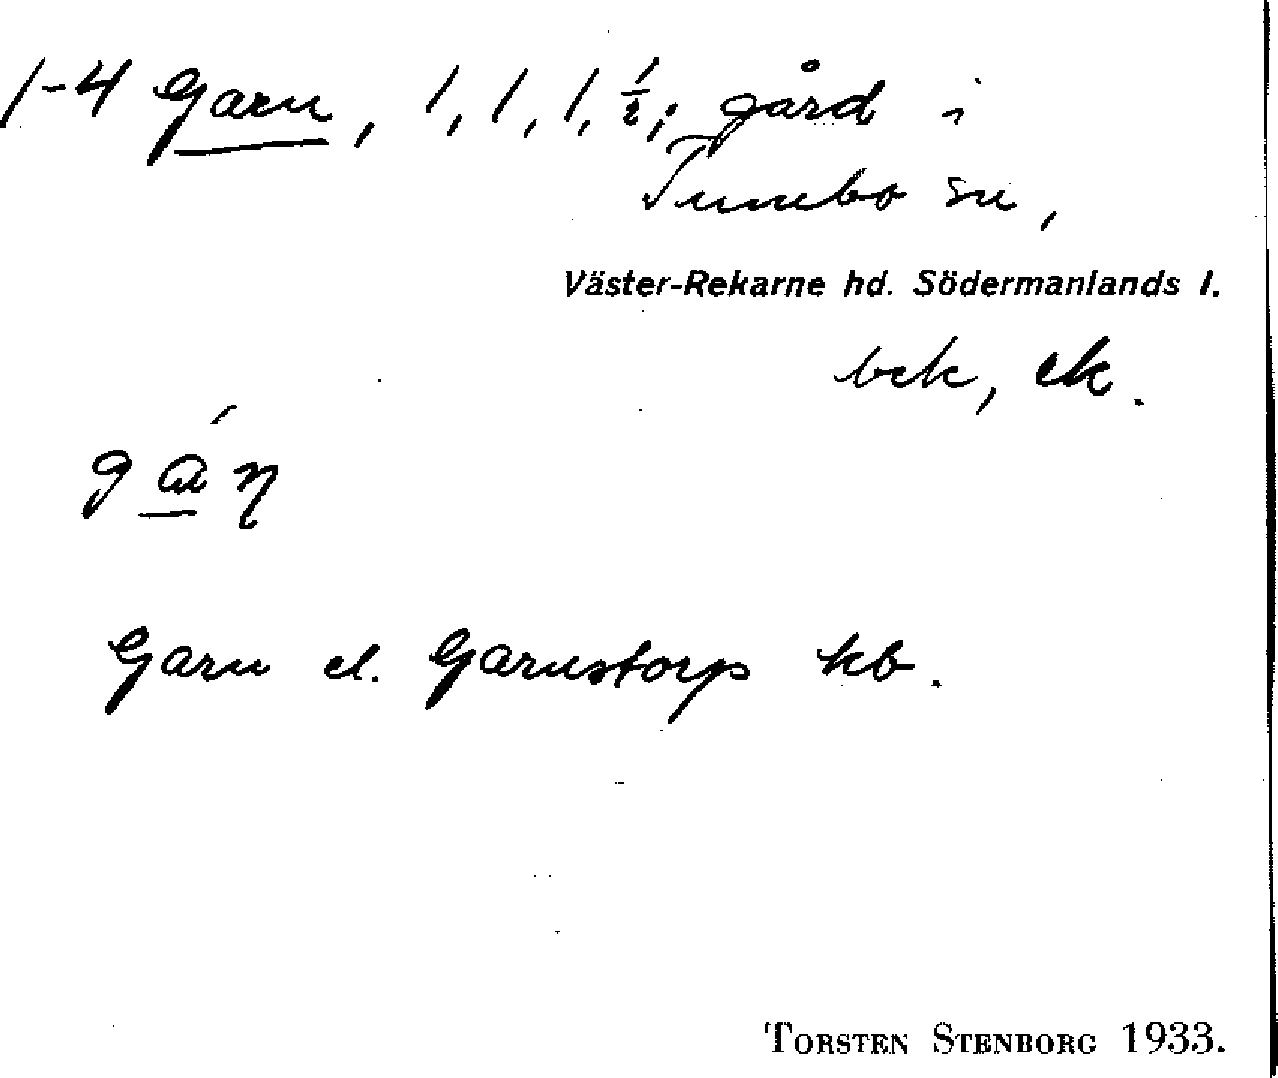 1-4 Garn, 1, 1, 1, ½; gård i
Tumbo sn,
Väster-Rekarne hd. Södermanlands l.
bek, ek.
Garn el. Garnstorp kb.
TORSTEN STENBORG 1933.